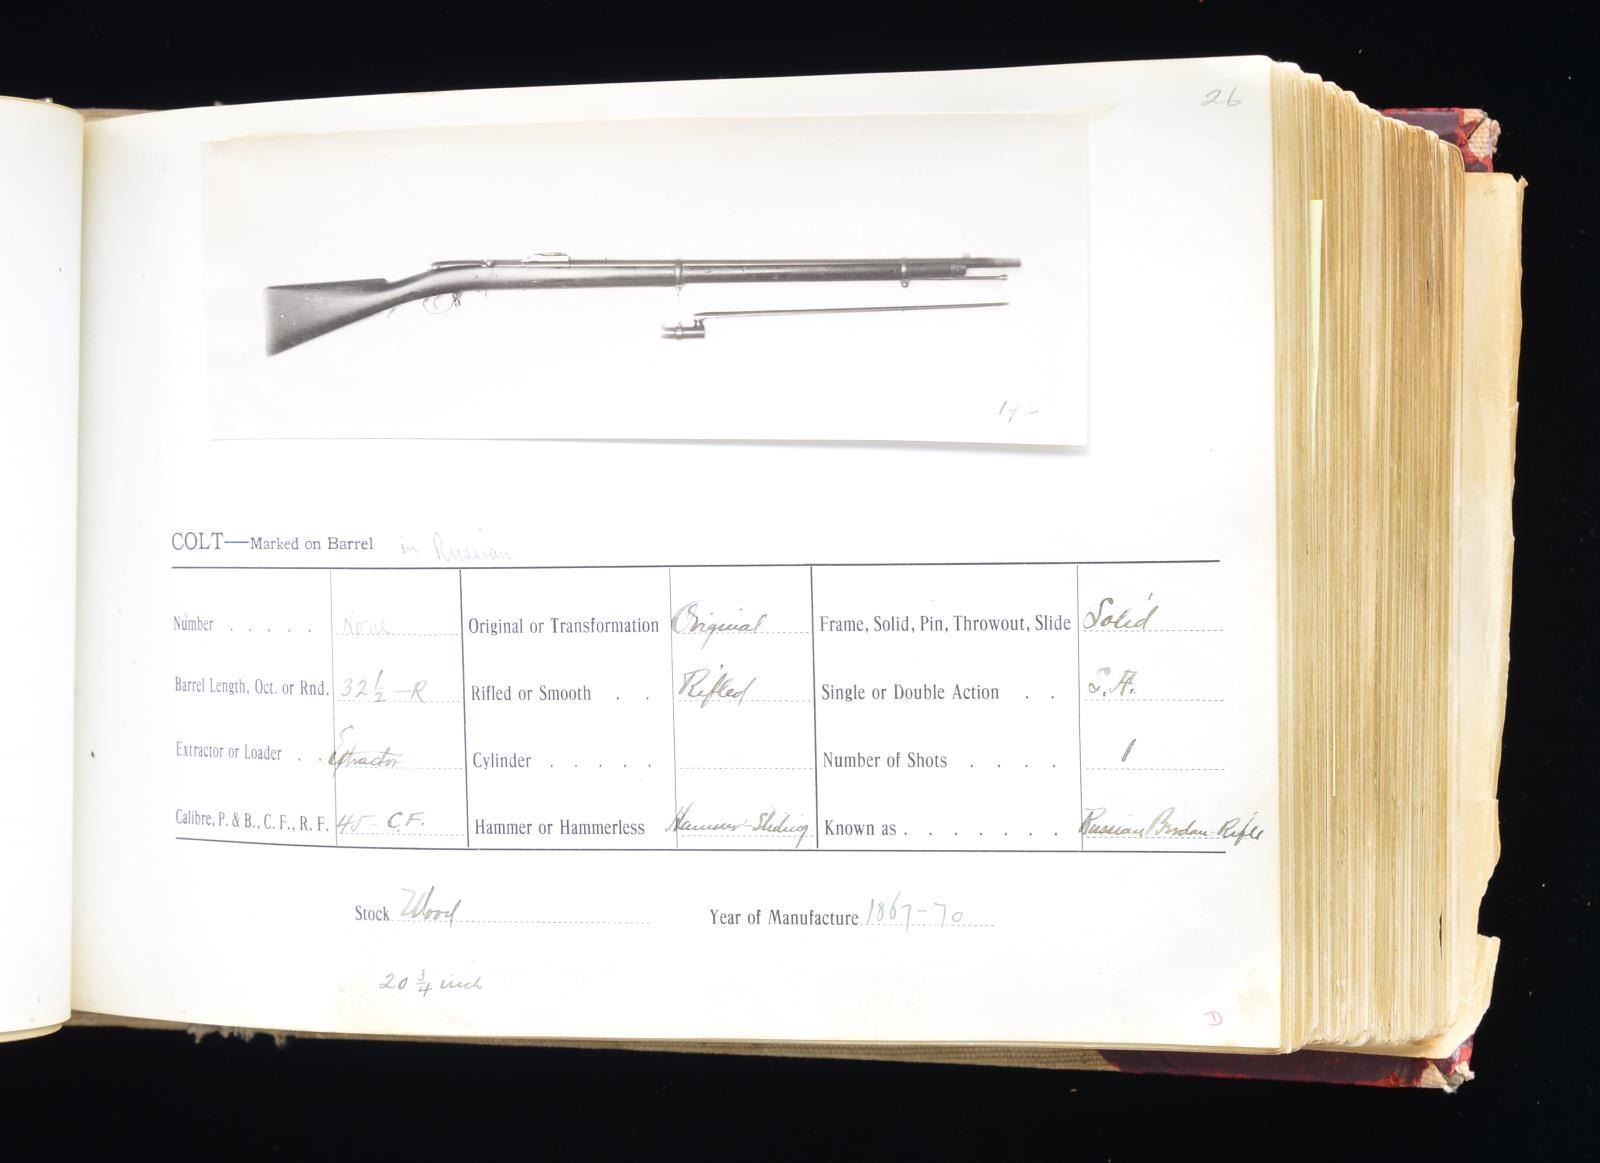 26
COLT—Marked on Barrel in Russian
Number . . . . . None
Original or Transformation Original
Frame, Solid, Pin, Throwout, Slide Solid
Barrel Length, Oct. or Rnd. 32½ - R
Rifled or Smooth . . Rifled
Single or Double Action . . S.A.
Extractor or Loader . . Extractor
Cylinder . . . . .
Number of Shots . . . . 1
Calibre, P. & B., C. F., R. F. 45 - C.F.
Hammer or Hammerless Hammer - Sliding
Known as . . . . . . . Russian Berdan-Rifle
Stock Wood
Year of Manufacture 1867-70
20 ¾ inch
D